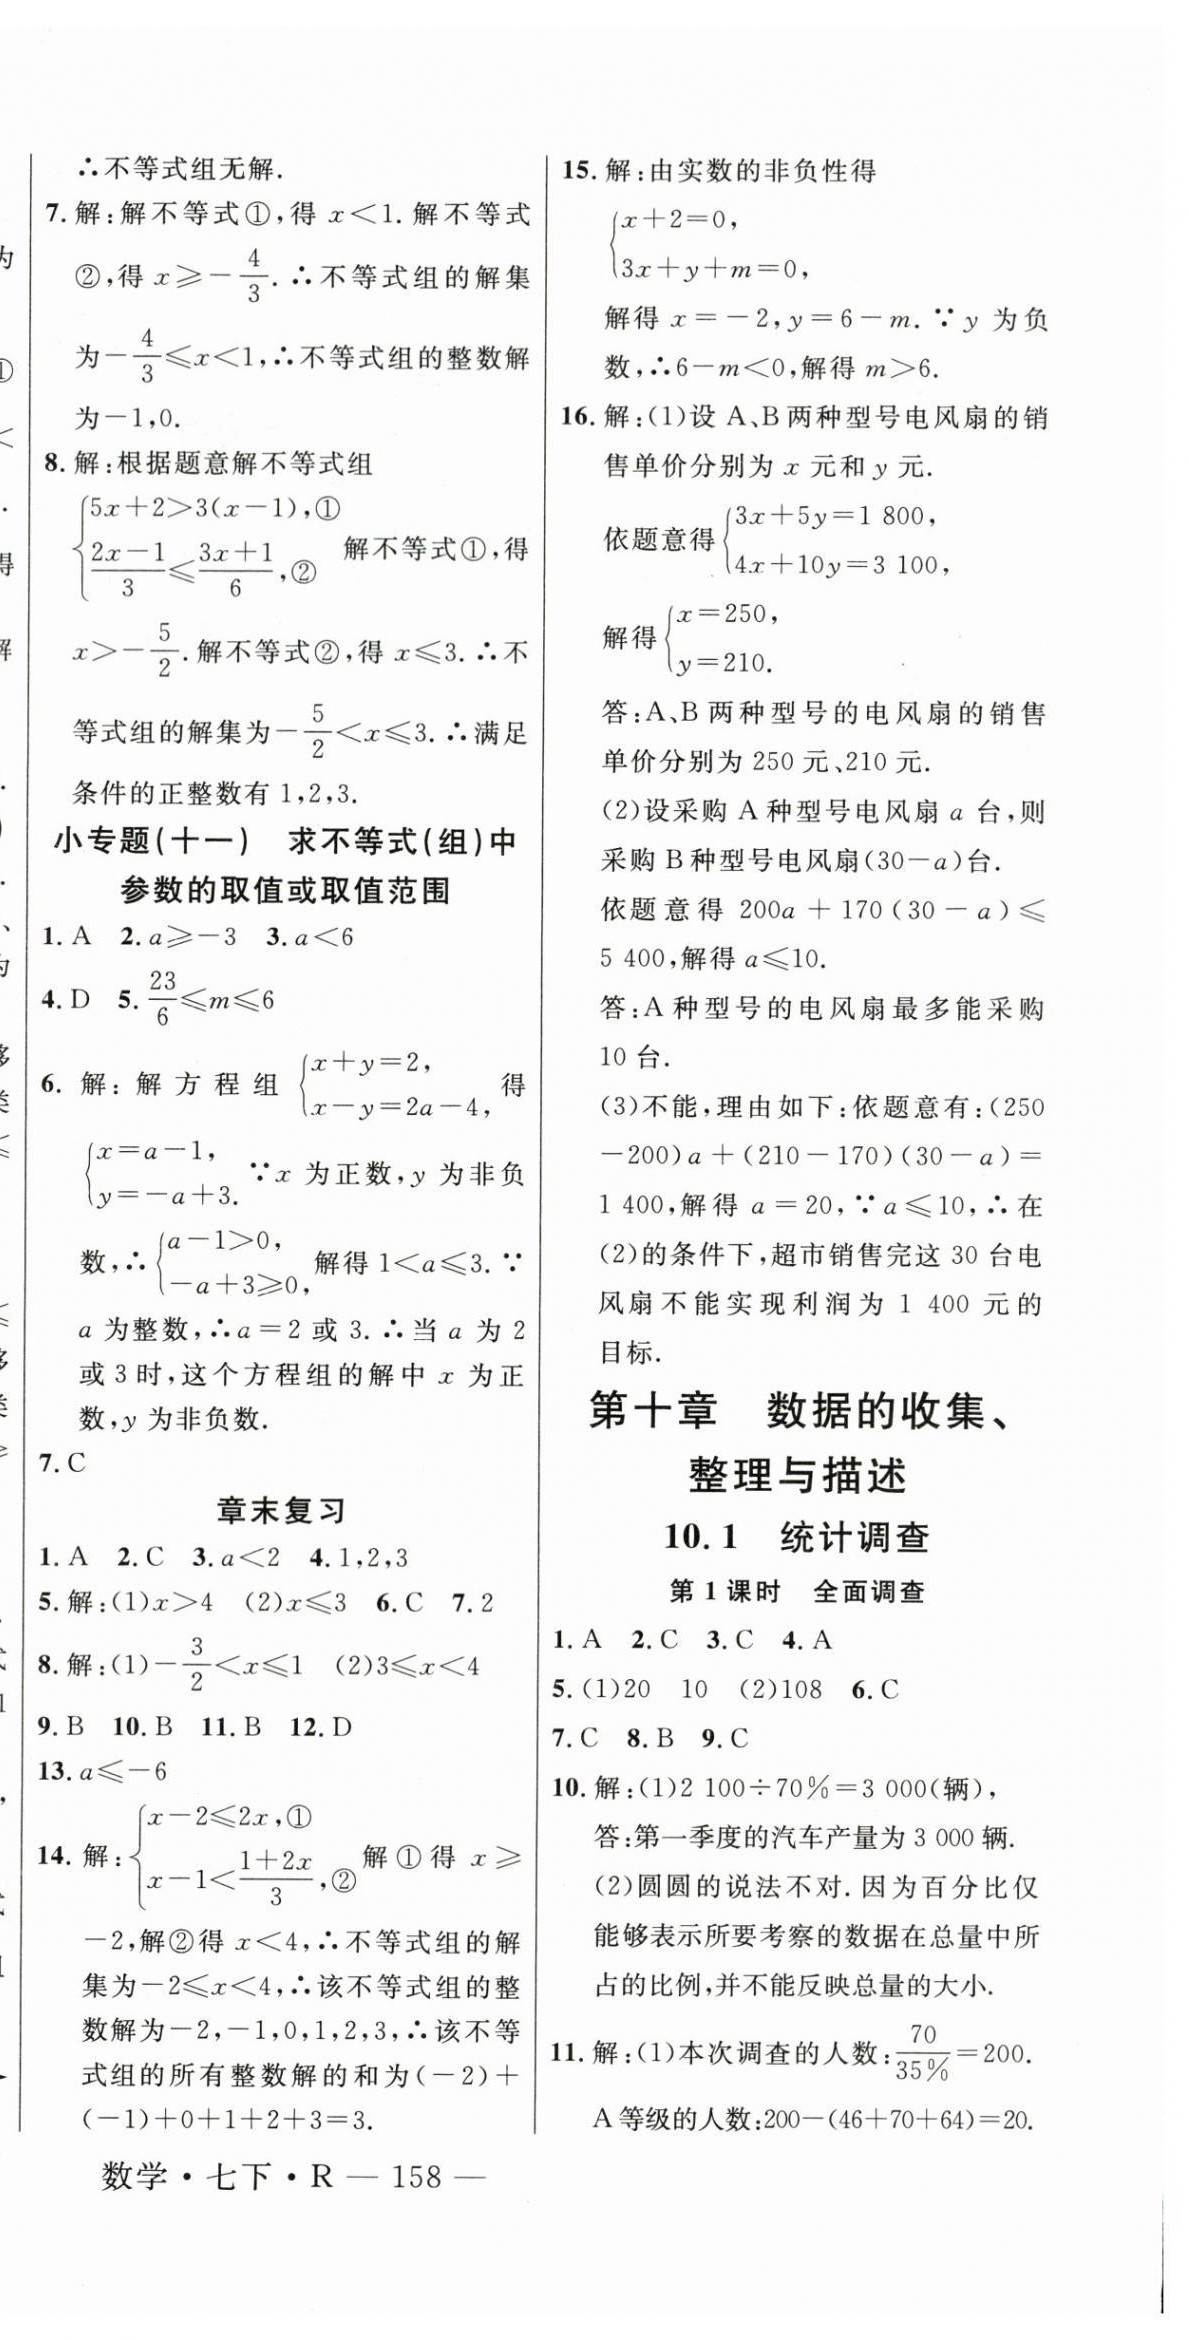 ∴不等式组无解.
7. 解:解不等式①,得 x<1. 解不等式
②,得 x≥-4/3. ∴不等式组的解集
为-4/3≤x<1,∴不等式组的整数解
为-1,0.
8. 解:根据题意解不等式组
{5x+2>3(x-1),①
(2x-1)/3≤(3x+1)/6,② 解不等式①,得
x>-5/2. 解不等式②,得 x≤3. ∴不
等式组的解集为-5/2<x≤3. ∴满足
条件的正整数有 1,2,3.
小专题(十一) 求不等式(组)中
参数的取值或取值范围
1. A 2. a≥-3 3. a<6
4. D 5. 23/6≤m≤6
6. 解:解方程组 {x+y=2, x-y=2a-4, 得
{x=a-1, y=-a+3. ∵x 为正数,y 为非负
数,∴{a-1>0, -a+3≥0, 解得 1<a≤3. ∵
a 为整数,∴a=2 或 3. ∴当 a 为 2
或 3 时,这个方程组的解中 x 为正
数,y 为非负数.
7. C
章末复习
1. A 2. C 3. a<2 4. 1,2,3
5. 解:(1)x>4 (2)x≤3 6. C 7. 2
8. 解:(1)-3/2<x≤1 (2)3≤x<4
9. B 10. B 11. B 12. D
13. a≤-6
14. 解:{x-2≤2x,① x-1<(1+2x)/3,② 解①得 x≥
-2,解②得 x<4,∴不等式组的解
集为-2≤x<4,∴该不等式组的整
数解为-2,-1,0,1,2,3,∴该不等
式组的所有整数解的和为(-2)+
(-1)+0+1+2+3=3.
15. 解:由实数的非负性得
{x+2=0,
3x+y+m=0,
解得 x=-2,y=6-m. ∵y 为负
数,∴6-m<0,解得 m>6.
16. 解:(1)设 A、B 两种型号电风扇的销
售单价分别为 x 元和 y 元.
依题意得{3x+5y=1 800, 4x+10y=3 100,
解得{x=250, y=210.
答:A、B 两种型号的电风扇的销售
单价分别为 250 元、210 元.
(2)设采购 A 种型号电风扇 a 台,则
采购 B 种型号电风扇(30-a)台.
依题意得 200a+170(30-a)≤
5 400,解得 a≤10.
答:A 种型号的电风扇最多能采购
10 台.
(3)不能,理由如下:依题意有:(250
-200)a+(210-170)(30-a)=
1 400,解得 a=20,∵a≤10,∴在
(2)的条件下,超市销售完这 30 台电
风扇不能实现利润为 1 400 元的
目标.
第十章 数据的收集、
整理与描述
10.1 统计调查
第 1 课时 全面调查
1. A 2. C 3. C 4. A
5. (1)20 10 (2)108 6. C
7. C 8. B 9. C
10. 解:(1)2 100÷70%=3 000(辆),
答:第一季度的汽车产量为 3 000 辆.
(2)圆圆的说法不对. 因为百分比仅
能够表示所要考察的数据在总量中所
占的比例,并不能反映总量的大小.
11. 解:(1)本次调查的人数:70/35%=200.
A 等级的人数:200-(46+70+64)=20.
数学·七下·R — 158 —